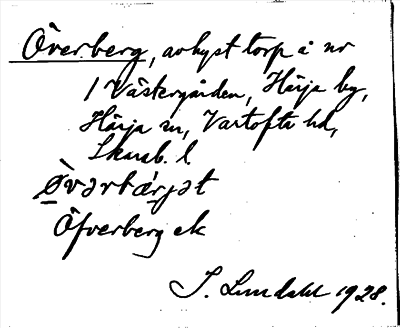 Överberg, avhyst torp å nr
1 Västergården, Härja by,
Härja sn, Vartofta hd,
Skarab. l.
Öfverberg ek
S. Lundahl 1928.